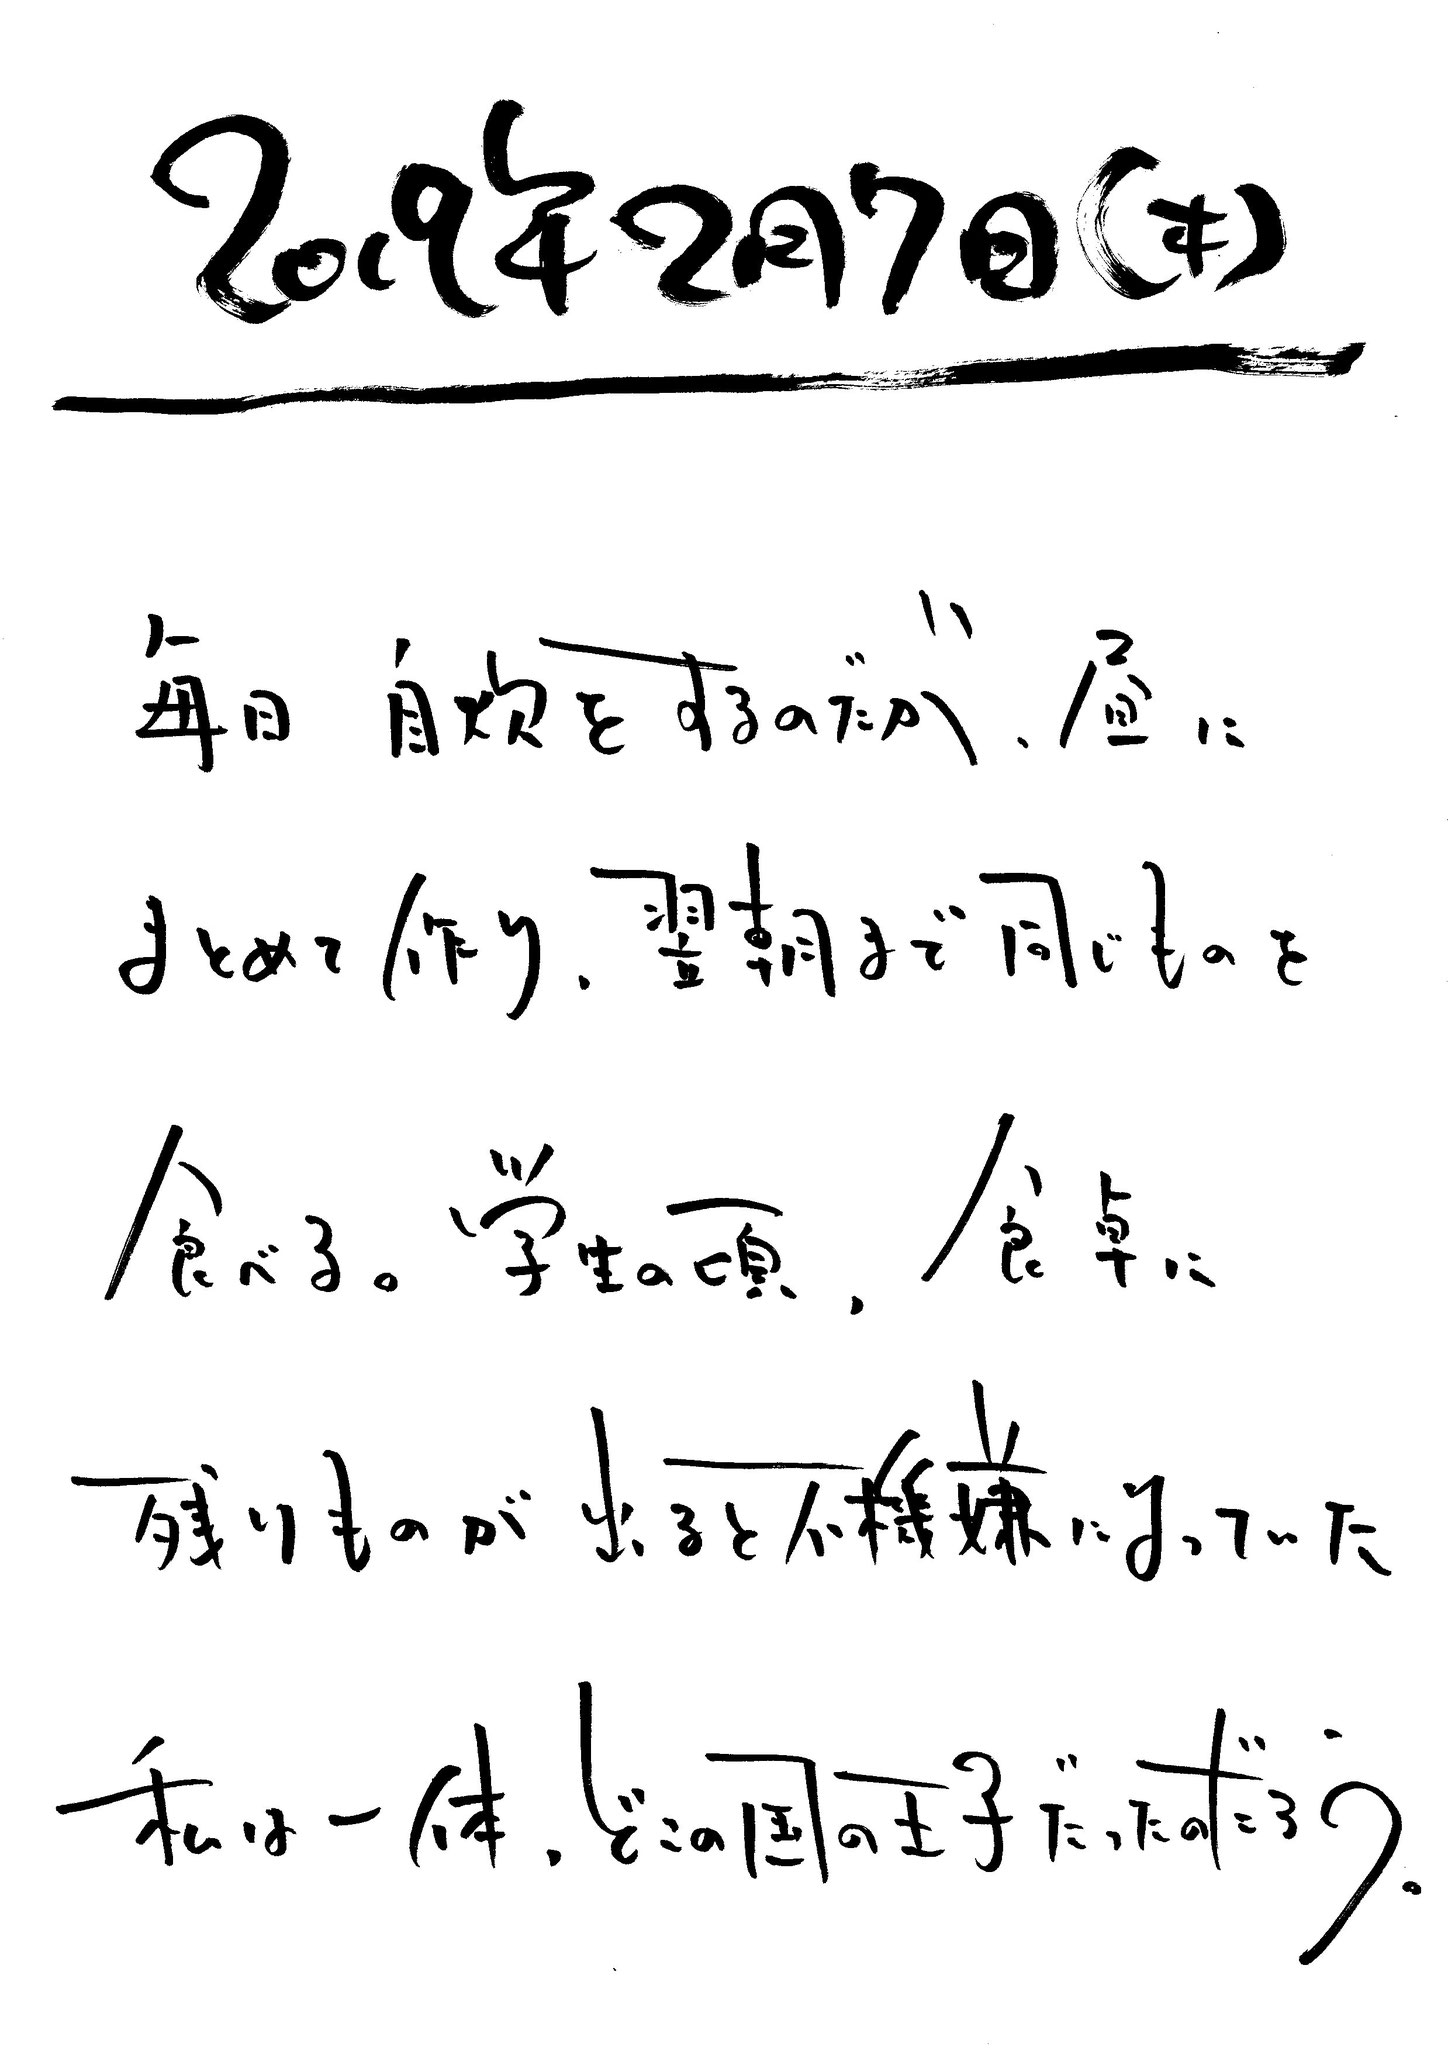 2019年2月7日(木)
毎日 自炊をするのだが、昼に
まとめて作り、翌朝まで同じものを
食べる。学生の頃、食卓に
残りものが出ると不機嫌になっていた
私は一体、どこの国の王子だったのだろう。